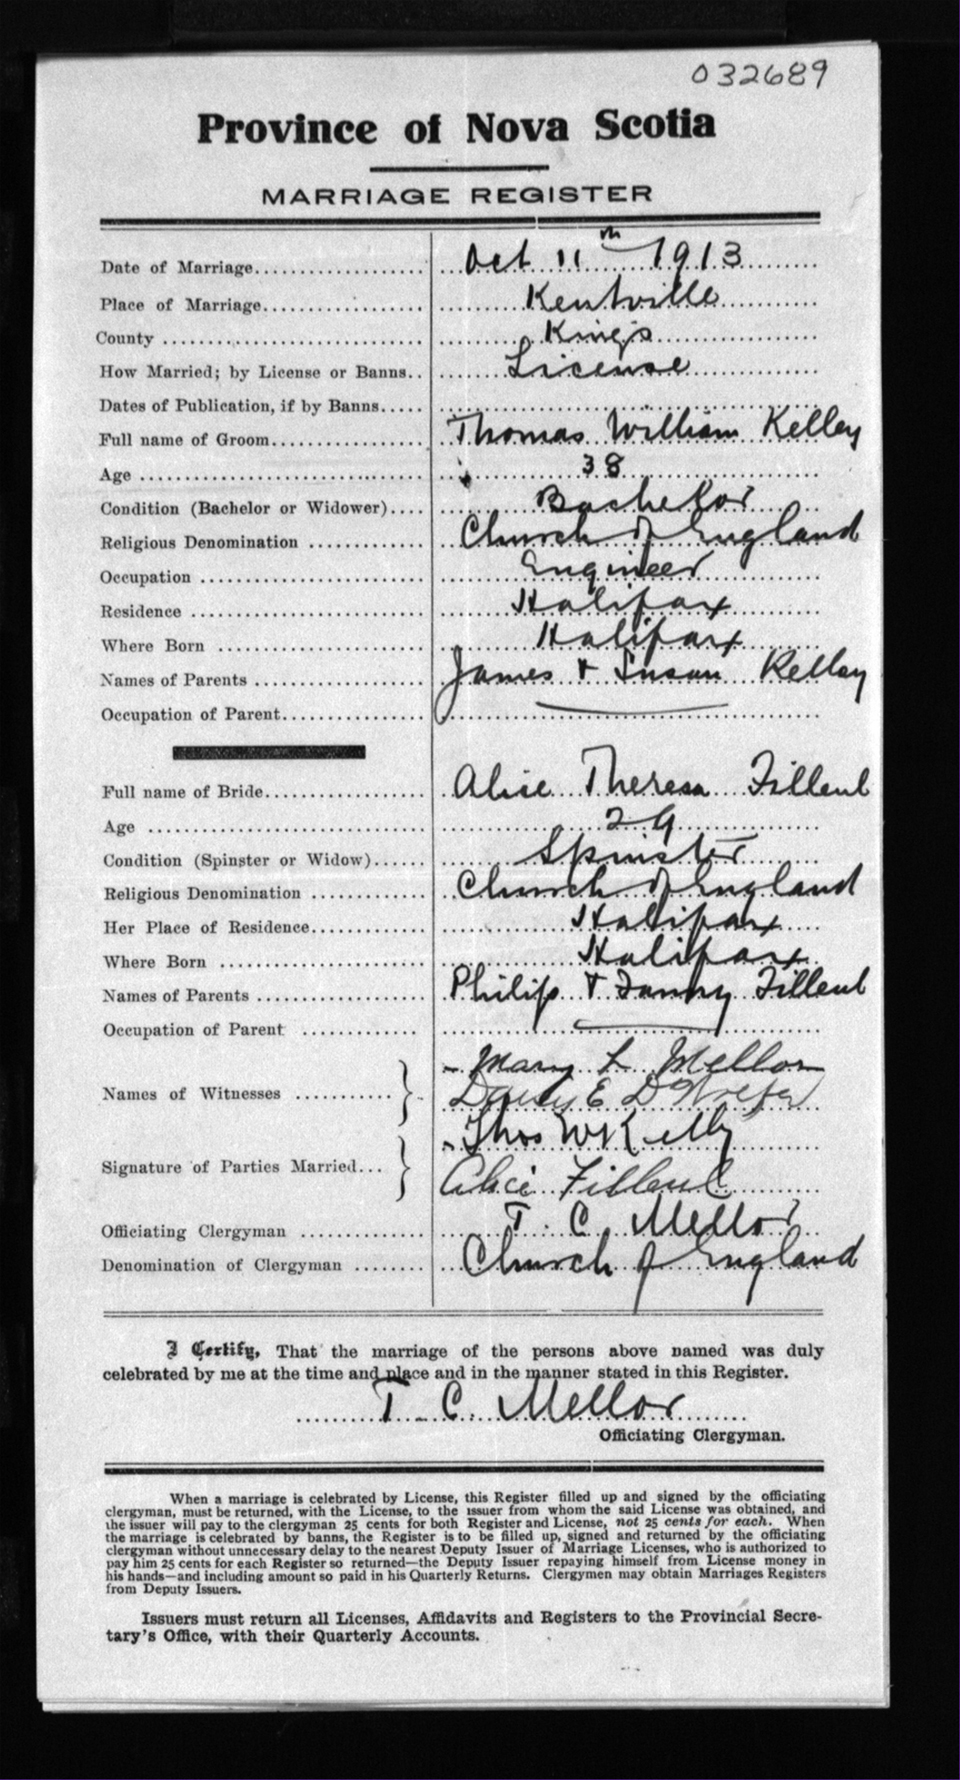 032689
Province of Nova Scotia
MARRIAGE REGISTER
Date of Marriage.................... Oct 11th 1913
Place of Marriage................... Kentville
County .............................. King's
How Married; by License or Banns.. License
Dates of Publication, if by Banns.....
Full name of Groom.................. Thomas William Kelley
Age ................................. 38
Condition (Bachelor or Widower).... Bachelor
Religious Denomination ............. Church of England
Occupation .......................... Engineer
Residence ........................... Halifax
Where Born ......................... Halifax
Names of Parents .................... James & Susan Kelley
Occupation of Parent.................
Full name of Bride................... Alice Theresa Filleul
Age ................................. 29
Condition (Spinster or Widow)...... Spinster
Religious Denomination ............. Church of England
Her Place of Residence.............. Halifax
Where Born ......................... Halifax
Names of Parents .................... Philip & Fanny Filleul
Occupation of Parent ...............
Mary L Mellor
Names of Witnesses ............
E DeWolfe
Thos W Kelly
Signature of Parties Married...
Alice Filleul
Officiating Clergyman ............... T. C. Mellor
Denomination of Clergyman ......... Church of England
I Certify, That the marriage of the persons above named was duly
celebrated by me at the time and place and in the manner stated in this Register.
T. C. Mellor
Officiating Clergyman.
When a marriage is celebrated by License, this Register filled up and signed by the officiating
clergyman, must be returned, with the License, to the issuer from whom the said License was obtained, and
the issuer will pay to the clergyman 25 cents for both Register and License, not 25 cents for each. When
the marriage is celebrated by banns, the Register is to be filled up, signed and returned by the officiating
clergyman without unnecessary delay to the nearest Deputy Issuer of Marriage Licenses, who is authorized to
pay him 25 cents for each Register so returned—the Deputy Issuer repaying himself from License money in
his hands—and including amount so paid in his Quarterly Returns. Clergymen may obtain Marriages Registers
from Deputy Issuers.
Issuers must return all Licenses, Affidavits and Registers to the Provincial Secre-
tary's Office, with their Quarterly Accounts.